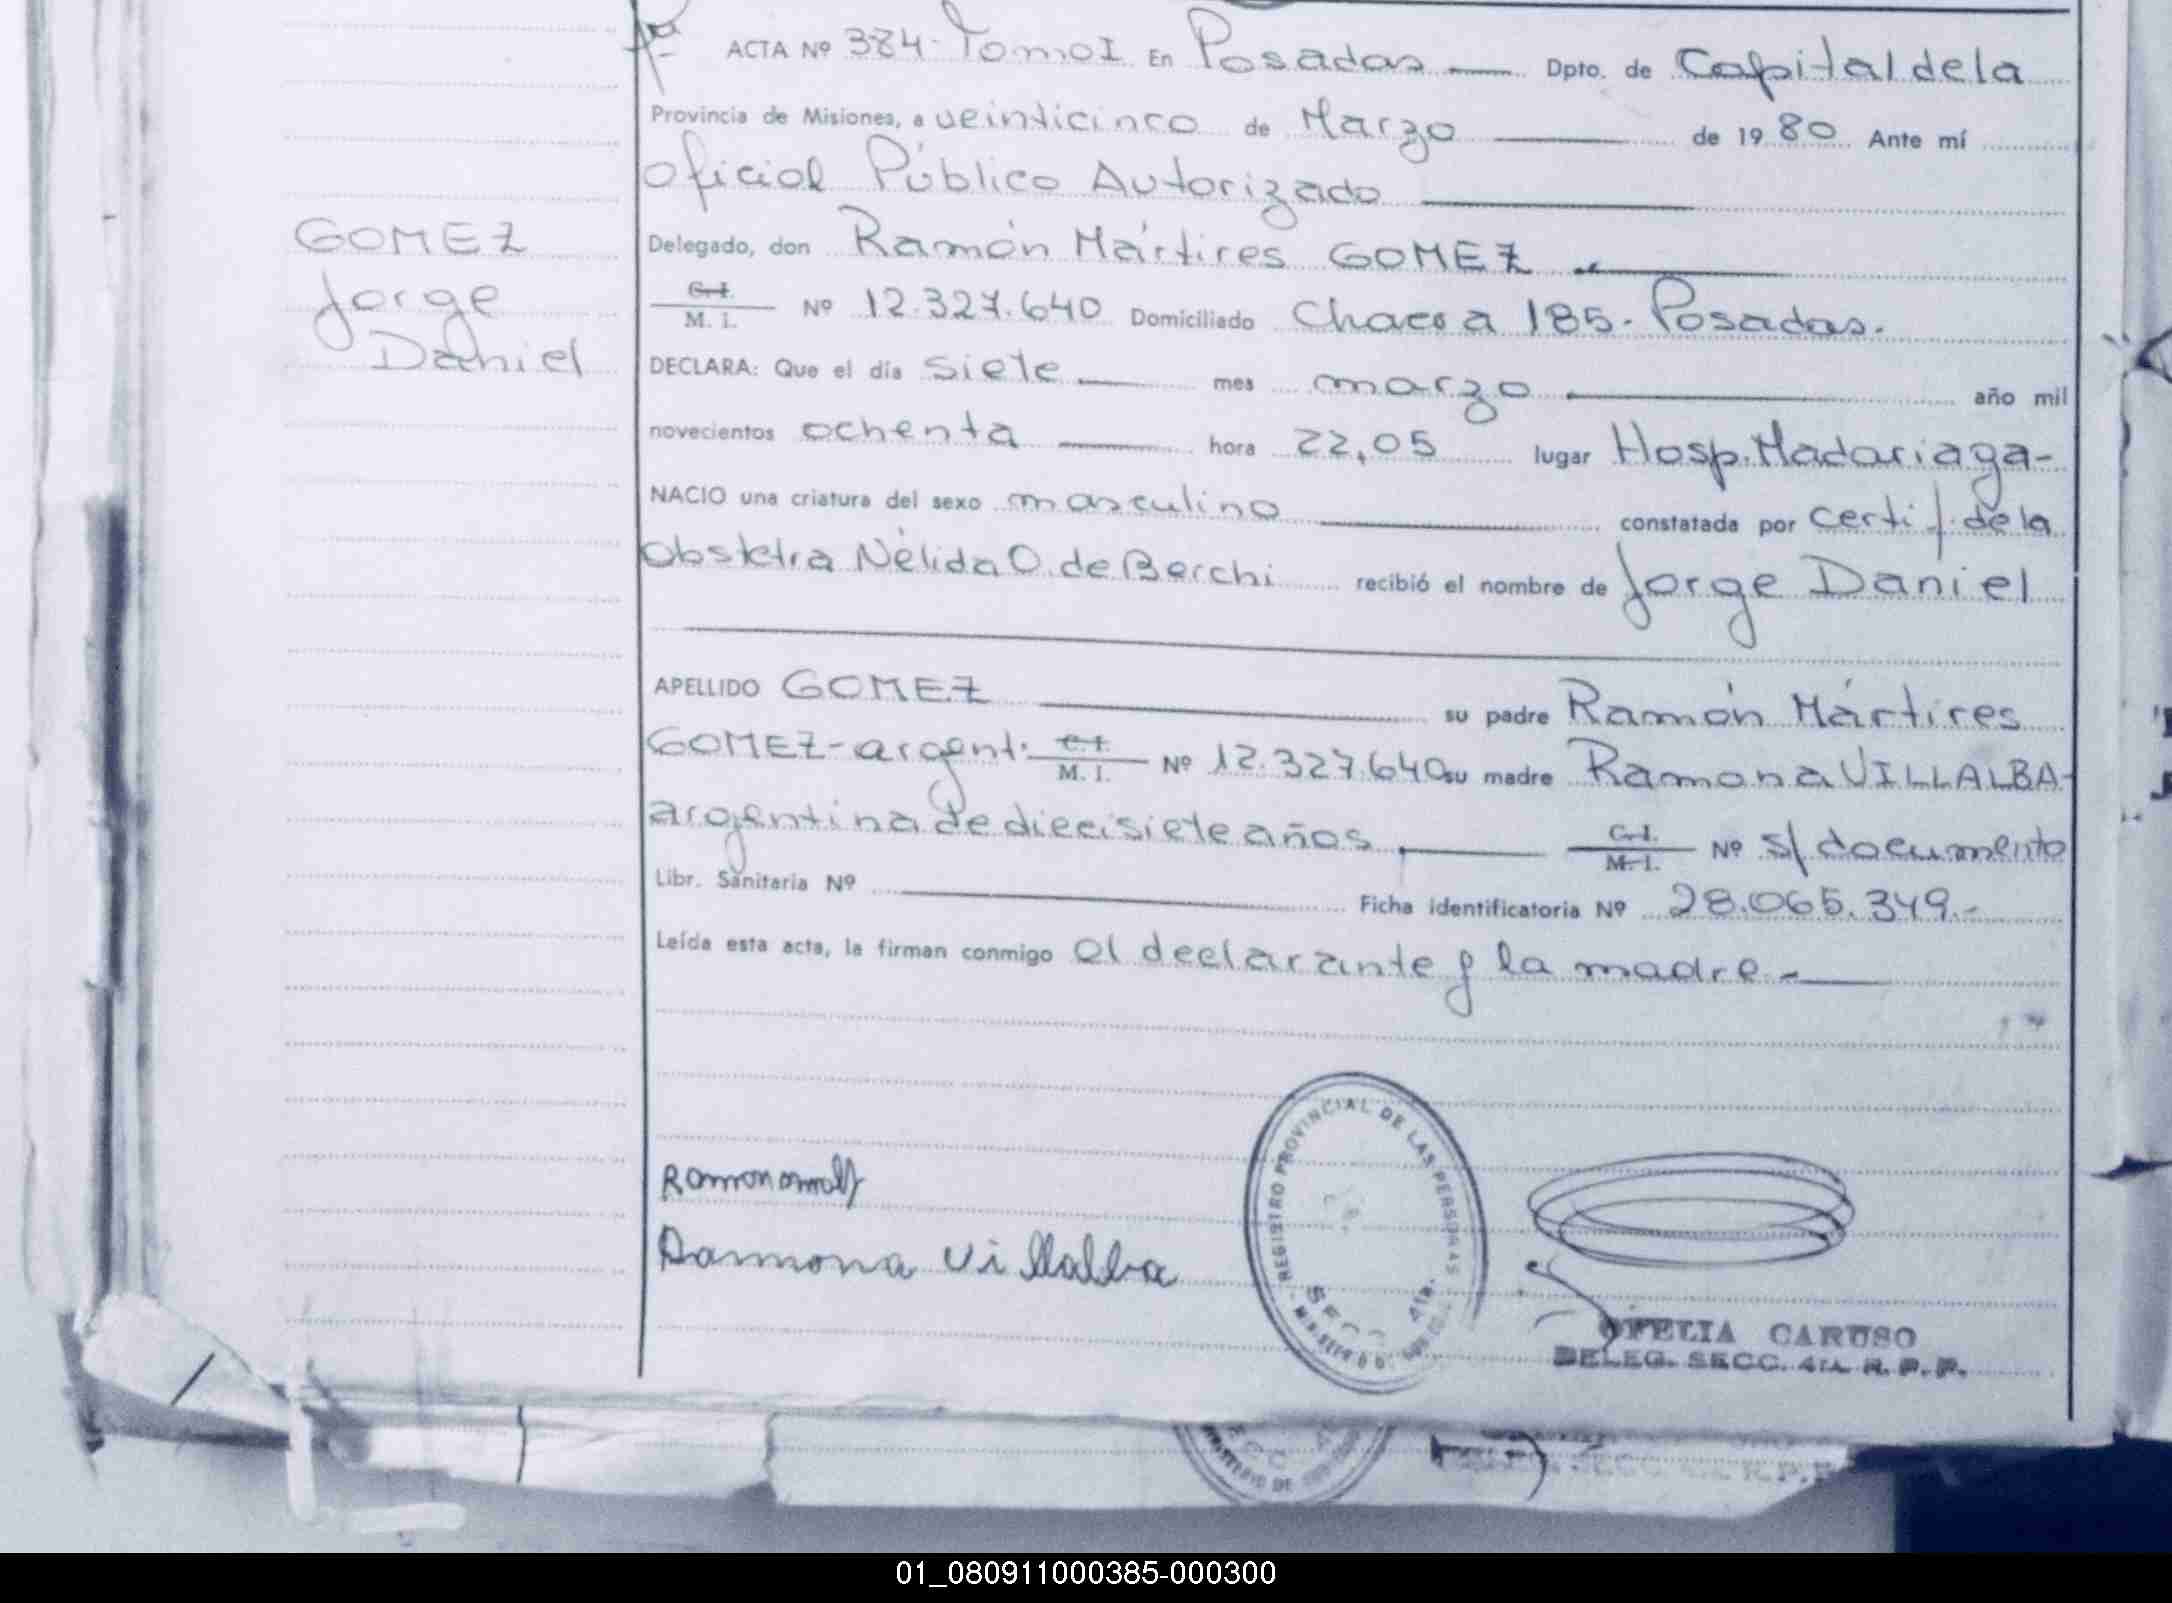 ACTA Nº 384-Tomo I. En Posadas Dpto. de Capital de la
Provincia de Misiones, a veinticinco de Marzo de 1980. Ante mí
Oficial Público Autorizado
GOMEZ
Jorge
Daniel
Delegado, don Ramón Mártires GOMEZ
C.I. M. I. Nº 12.327.640 Domiciliado Chacra 185. Posadas.
DECLARA: Que el día siete mes marzo año mil
novecientos ochenta hora 22,05 lugar Hosp. Madariaga-
NACIO una criatura del sexo masculino constatada por certif. de la
Obstetra Nélida O. de Berchi recibió el nombre de Jorge Daniel
APELLIDO GOMEZ su padre Ramón Mártires
GOMEZ-argent. C.I. M. I. Nº 12.327.640 su madre Ramona VILLALBA-
argentina de diecisiete años C.I. M.I. Nº s/documento
Libr. Sanitaria Nº Ficha identificatoria Nº 28.065.349.-
Leída esta acta, la firman conmigo el declarante y la madre.-
Ramona Villalba
REGISTRO PROVINCIAL DE LAS PERSONAS
SECC. 4ta.
OFELIA CARUSO
DELEG. SECC. 4ta. R. P. P.
01_080911000385-000300